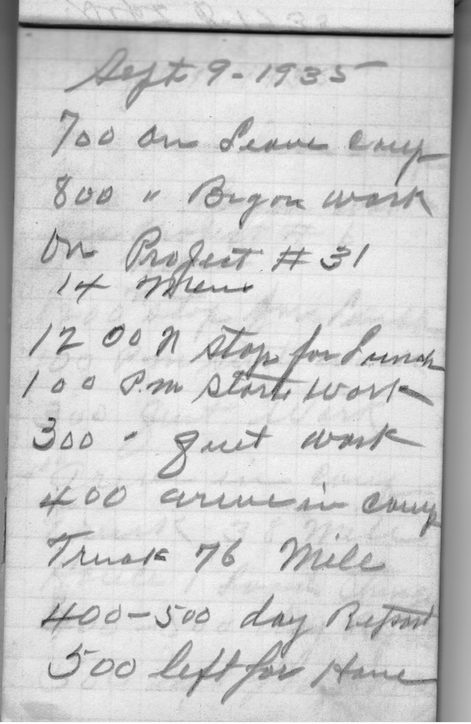 Sept 9-1935
700 am Leave camp
800 " Began work
On Project #31
14 men
12 00 N stop for Lunch
100 P.m start work
300 " quit work
400 arive in camp
Truck 76 Mile
400-500 day Report
500 left for Home